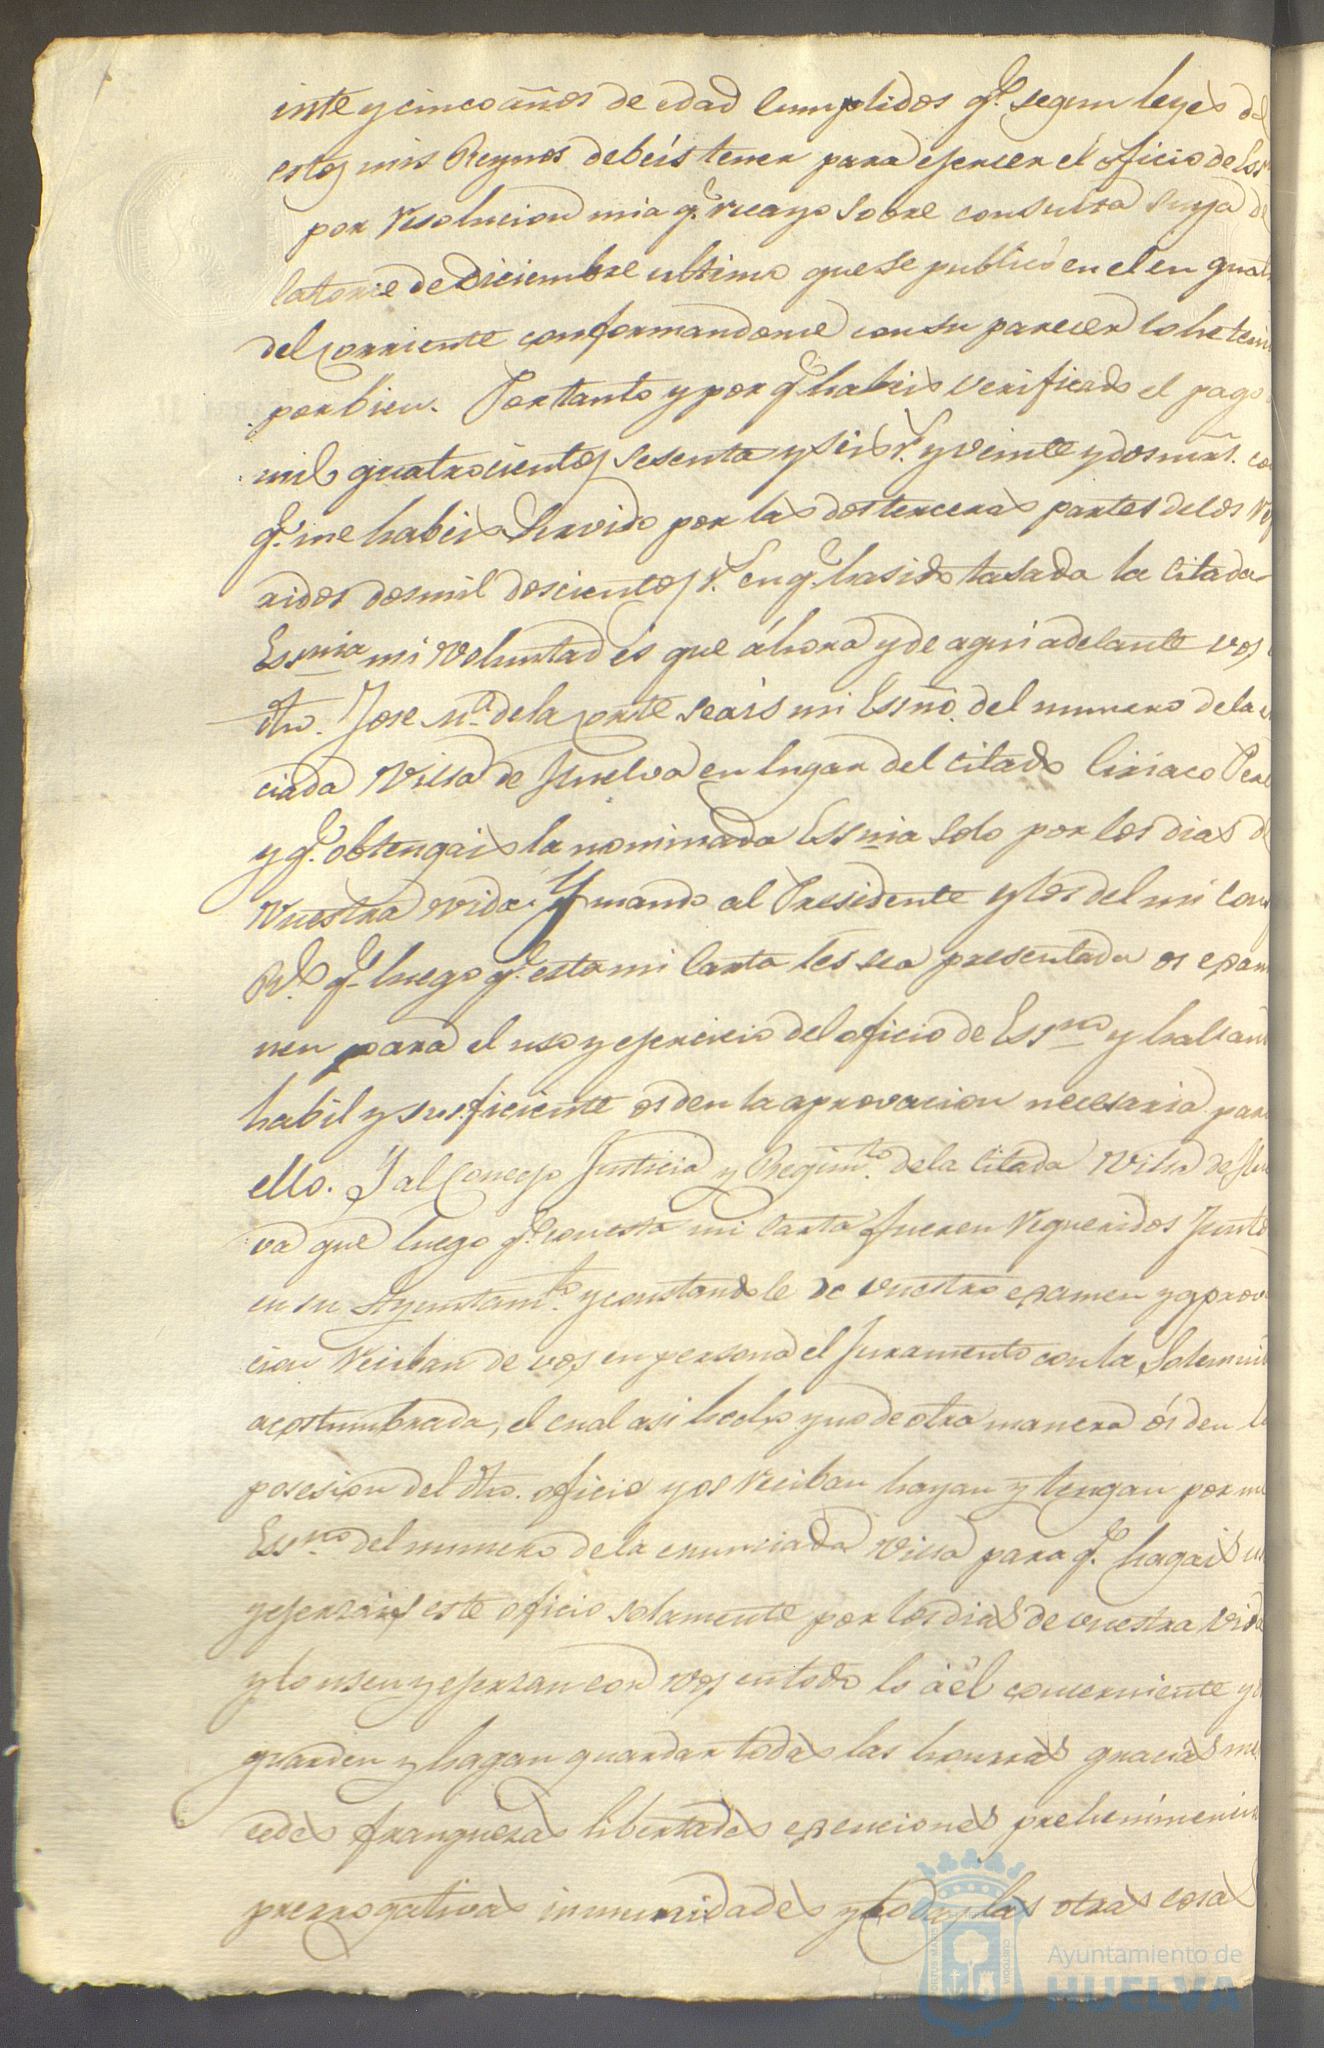 inte y cinco años de edad cumplidos q.e segun leyes de
estos mis Reynos debeis tener para ejercer el oficio de Ess
por resolucion mia q.e recayo sobre consulta suya de
catorce de Diciembre ultimo que se publicó en el en quat
del corriente conformandome con su parecer lo he teni
por bien. Por tanto y por q.e habeis verificado el pago
mil quatrocientos sesenta y seis r.s y veinte y dos mrs. co
q.e me habeis servido por las dos terceras partes de los ref
ridos dos mil doscientos r.s en q.e ha sido tasada la citada
Essnia mi voluntad es que áhora y de aqui adelante vos
dho. Jose M.a de la Corte seais mi Essno. del numero de la
ciada Villa de Huelva en lugar del citado Ciriaco
y q.e obtengais la nominada Essnia solo por los dias de
vuestra vida. Y mando al Presidente y los del mi Cons
R.l q.e luego q.e esta mi Carta les sea presentada os exami
nen para el uso y ejercicio del oficio de Essno y halland
habil y suficiente os den la aprovacion necesaria para
ello. Y al Concejo Justicia y Regim.to de la citada Villa de Hu
va que luego q.e con esta mi Carta fueren requeridos Juntos
en su Ayuntam.to y constandole de vuestro examen y aprova
cion reciban de vos en persona el Juramento con la Solemnid
acostumbrada, el cual asi hecho y no de otra manera ós den la
posesion del dho. oficio y os reciban hayan y tengan por mi
Essno del numero de la enunciada Villa para q.e hagais
y ejerzais este oficio solamente por los dias de vuestra vida
y lo usen y ejerzan con vos en todo lo á él concerniente y
guarden y hagan guardar todas las honrras gracias mer
cedes franquezas libertades exenciones preheminencias
prerrogativas inmunidades y todas las otras cosas
Ayuntamiento de
HUELVA